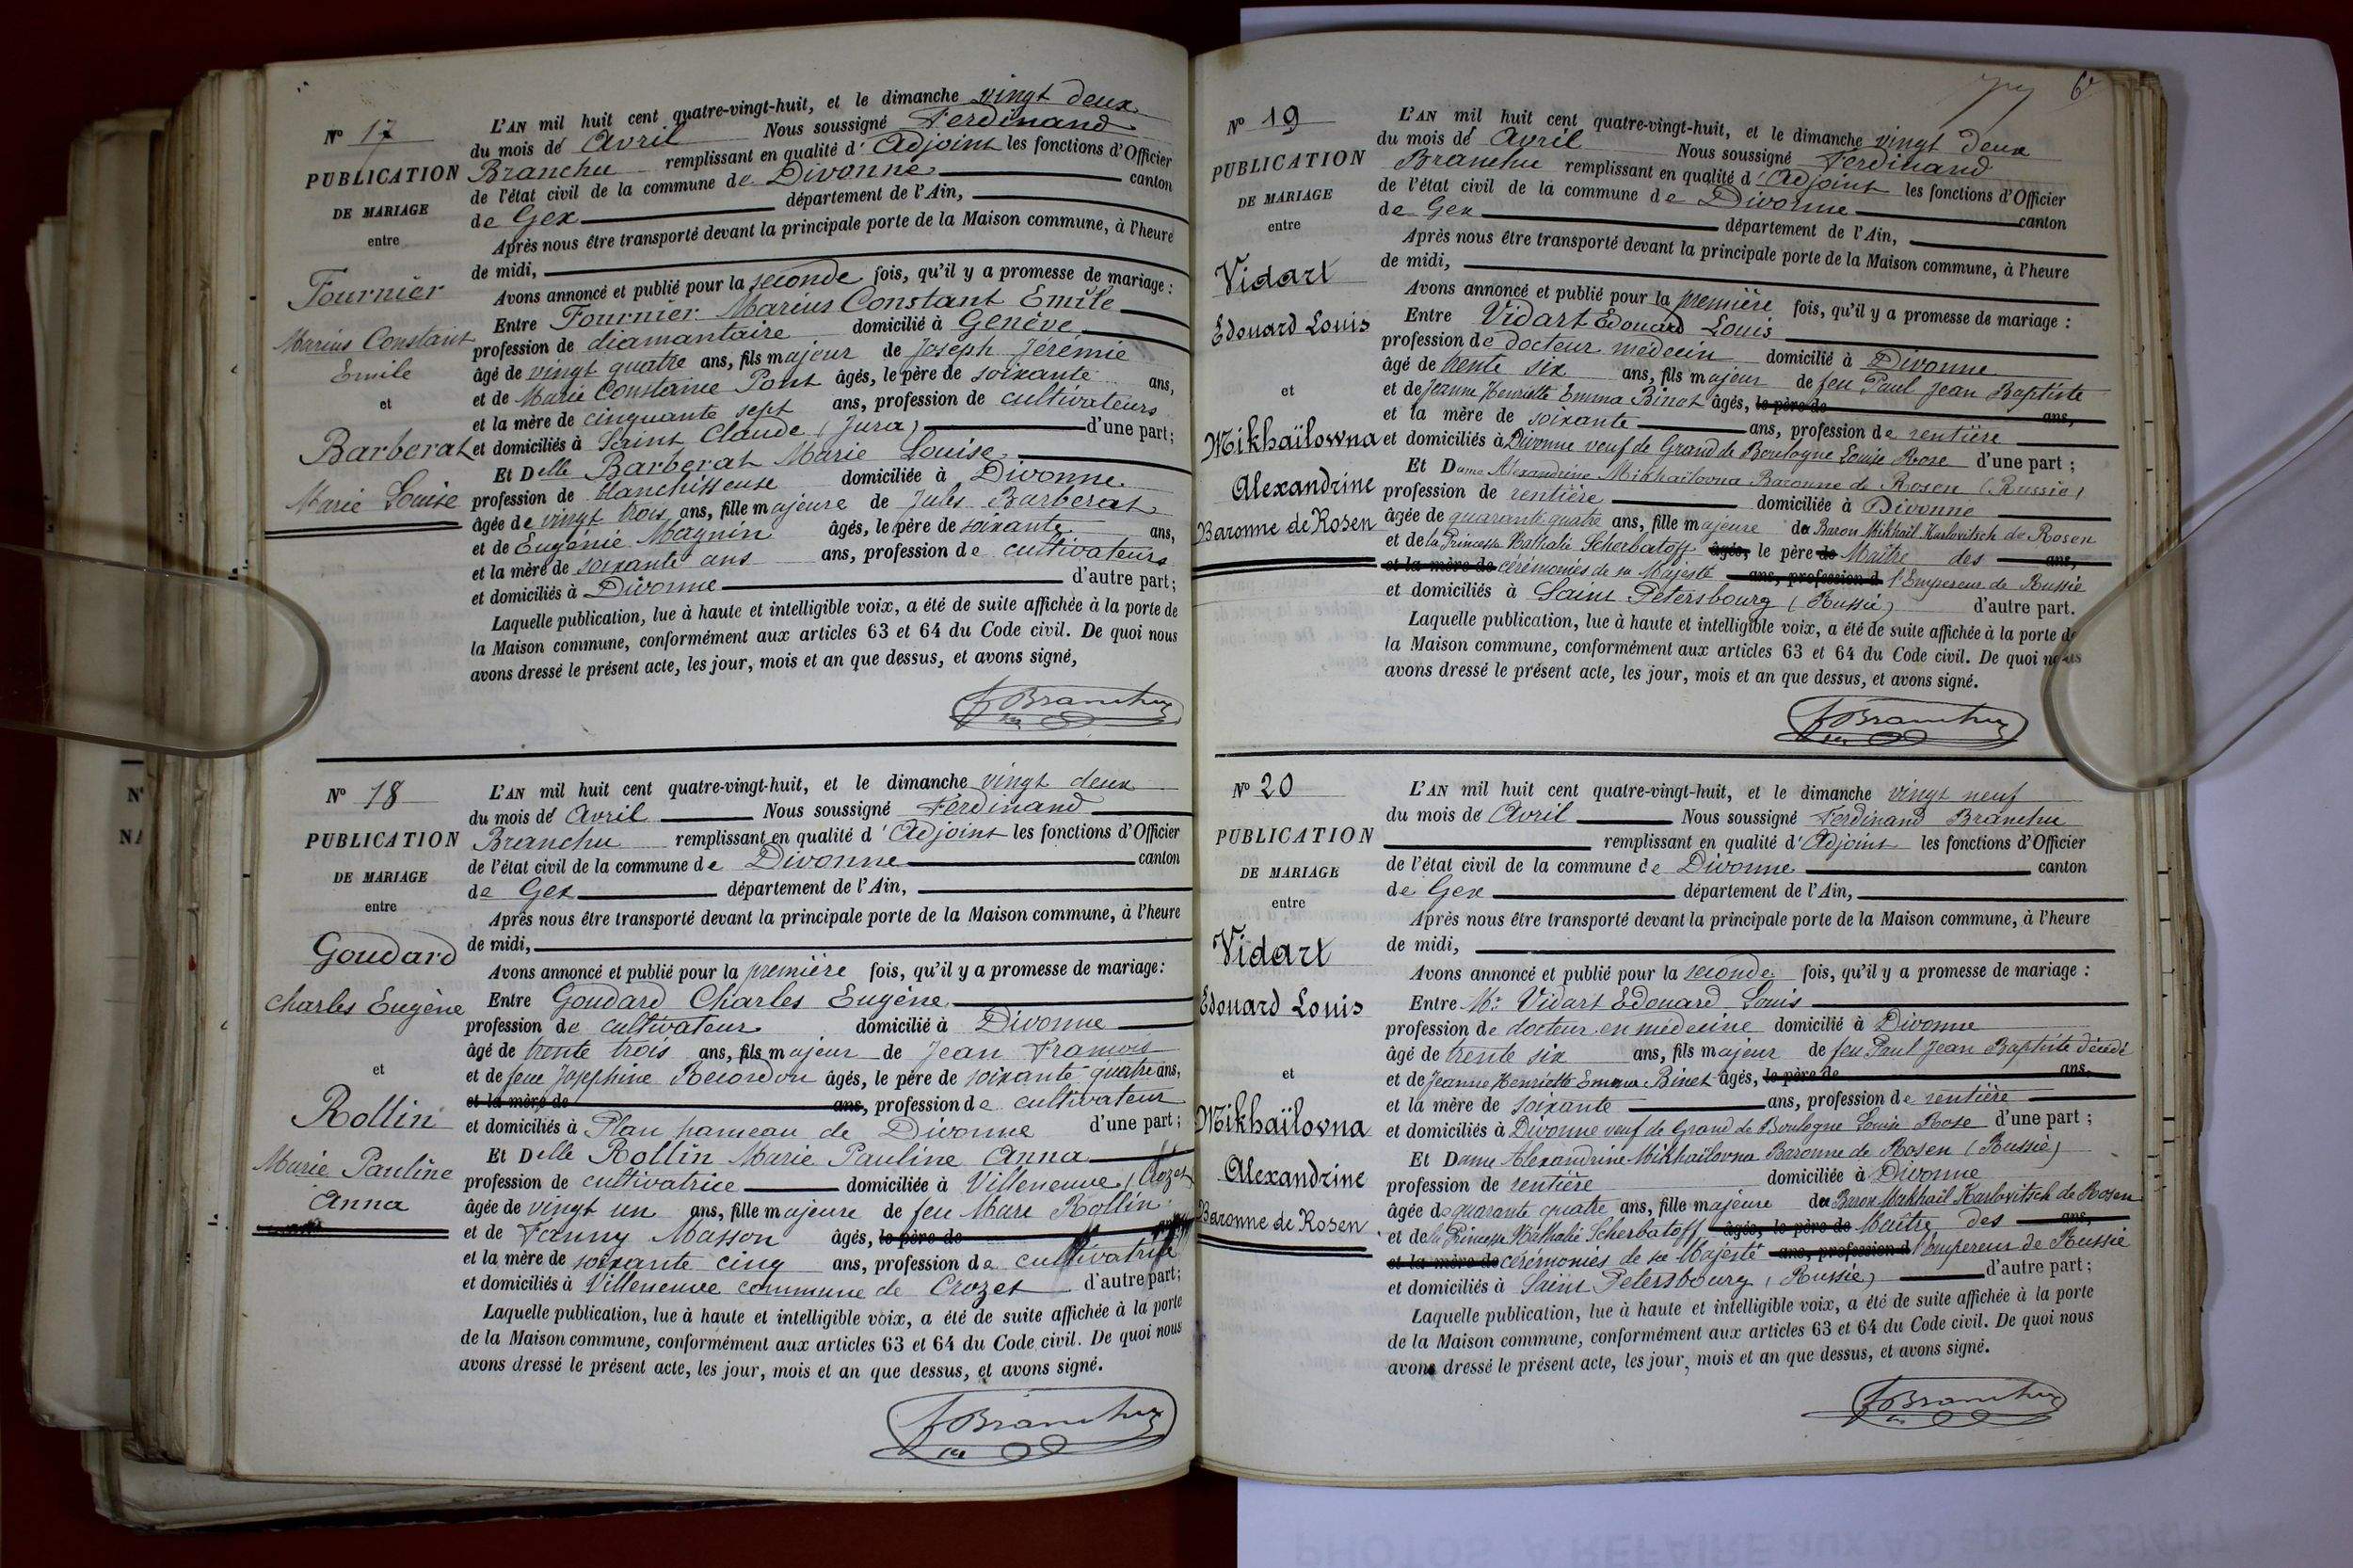 N° 17
PUBLICATION
DE MARIAGE
entre
Fournier
Marius Constant
Emile
et
Barberat
Marie Louise
L'AN mil huit cent quatre-vingt-huit, et le dimanche vingt deux
du mois de Avril Nous soussigné Ferdinand
Branchu remplissant en qualité d'Adjoint les fonctions d'Officier
de l'état civil de la commune de Divonne canton
de Gex département de l'Ain,
Après nous être transporté devant la principale porte de la Maison commune, à l'heure
de midi,
Avons annoncé et publié pour la seconde fois, qu'il y a promesse de mariage :
Entre Fournier Marius Constant Emile
profession de diamantaire domicilié à Genève
âgé de vingt quatre ans, fils majeur de Joseph Jérémie
et de Marie Constance Pont âgés, le père de soixante ans,
et la mère de cinquante sept ans, profession de cultivateurs
et domiciliés à Saint Claude (Jura) d'une part ;
Et Delle Barberat Marie Louise
profession de blanchisseuse domiciliée à Divonne
âgée de vingt trois ans, fille majeure de Jules Barberat
et de Eugénie Magnin âgés, le père de soixante ans,
et la mère de soixante ans ans, profession de cultivateurs
et domiciliés à Divonne d'autre part ;
Laquelle publication, lue à haute et intelligible voix, a été de suite affichée à la porte de
la Maison commune, conformément aux articles 63 et 64 du Code civil. De quoi nous
avons dressé le présent acte, les jour, mois et an que dessus, et avons signé,
F Branchu
N° 18
PUBLICATION
DE MARIAGE
entre
Goudard
Charles Eugène
et
Rollin
Marie Pauline
Anna
L'AN mil huit cent quatre-vingt-huit, et le dimanche vingt deux
du mois de Avril Nous soussigné Ferdinand
Branchu remplissant en qualité d'Adjoint les fonctions d'Officier
de l'état civil de la commune de Divonne canton
de Gex département de l'Ain,
Après nous être transporté devant la principale porte de la Maison commune, à l'heure
de midi,
Avons annoncé et publié pour la première fois, qu'il y a promesse de mariage :
Entre Goudard Charles Eugène
profession de cultivateur domicilié à Divonne
âgé de trente trois ans, fils majeur de Jean François
et de feue Josephine Recordon âgés, le père de soixante quatre ans,
et la mère de ans, profession de cultivateur
et domiciliés à Plan hameau de Divonne d'une part ;
Et Delle Rollin Marie Pauline Anna
profession de cultivatrice domiciliée à Villeneuve (Crozet
âgée de vingt un ans, fille majeure de feu Marc Rollin
et de Fanny Masson âgés, le père de ans,
et la mère de soixante cinq ans, profession de cultivatrice
et domiciliés à Villeneuve commune de Crozet d'autre part ;
Laquelle publication, lue à haute et intelligible voix, a été de suite affichée à la porte
de la Maison commune, conformément aux articles 63 et 64 du Code civil. De quoi nous
avons dressé le présent acte, les jour, mois et an que dessus, et avons signé.
F Branchu
N° 19
PUBLICATION
DE MARIAGE
entre
Vidart
Edouard Louis
et
Mikhaïlowna
Alexandrine
Baronne de Rosen
L'AN mil huit cent quatre-vingt-huit, et le dimanche vingt deux
du mois de Avril Nous soussigné Ferdinand
Branchu remplissant en qualité d'Adjoint les fonctions d'Officier
de l'état civil de la commune de Divonne canton
de Gex département de l'Ain,
Après nous être transporté devant la principale porte de la Maison commune, à l'heure
de midi,
Avons annoncé et publié pour la première fois, qu'il y a promesse de mariage :
Entre Vidart Edouard Louis
profession de docteur médecin domicilié à Divonne
âgé de trente six ans, fils majeur de feu Paul Jean Baptiste
et de Jeanne Henriette Emma Binet âgés, le père de ans,
et la mère de soixante ans, profession de rentière
et domiciliés à Divonne veuf de Grand de Boulogne Louise Rose d'une part ;
Et Dame Alexandrine Mikhaïlovna Baronne de Rosen (Russie)
profession de rentière domiciliée à Divonne
âgée de quarante quatre ans, fille majeure du Baron Mikhaïl Karlovitsch de Rosen
et de la Princesse Nathalie Scherbatoff âgés, le père de Maître des ans,
et la mère de cérémonies de sa Majesté ans, profession d l'Empereur de Russie
et domiciliés à Saint Petersbourg (Russie) d'autre part.
Laquelle publication, lue à haute et intelligible voix, a été de suite affichée à la porte de
la Maison commune, conformément aux articles 63 et 64 du Code civil. De quoi nous
avons dressé le présent acte, les jour, mois et an que dessus, et avons signé.
F Branchu
N° 20
PUBLICATION
DE MARIAGE
entre
Vidart
Edouard Louis
et
Mikhaïlovna
Alexandrine
Baronne de Rosen
L'AN mil huit cent quatre-vingt-huit, et le dimanche vingt neuf
du mois de Avril Nous soussigné Ferdinand Branchu
remplissant en qualité d'Adjoint les fonctions d'Officier
de l'état civil de la commune de Divonne canton
de Gex département de l'Ain,
Après nous être transporté devant la principale porte de la Maison commune, à l'heure
de midi,
Avons annoncé et publié pour la seconde fois, qu'il y a promesse de mariage :
Entre Mr Vidart Edouard Louis
profession de docteur en médecine domicilié à Divonne
âgé de trente six ans, fils majeur de feu Paul Jean Baptiste décédé
et de Jeanne Henriette Emma Binet âgés, le père de ans,
et la mère de soixante ans, profession de rentière
et domiciliés à Divonne veuf de Grand de Boulogne Louise Rose d'une part ;
Et Dame Alexandrine Mikhaïlovna Baronne de Rosen (Russie)
profession de rentière domiciliée à Divonne
âgée de quarante quatre ans, fille majeure du Baron Mikhaïl Karlovitsch de Rosen
et de la Princesse Nathalie Scherbatoff âgés, le père de Maître des ans,
et la mère de cérémonies de sa Majesté ans, profession d l'Empereur de Russie
et domiciliés à Saint Petersbourg (Russie) d'autre part ;
Laquelle publication, lue à haute et intelligible voix, a été de suite affichée à la porte
de la Maison commune, conformément aux articles 63 et 64 du Code civil. De quoi nous
avons dressé le présent acte, les jour, mois et an que dessus, et avons signé.
F Branchu